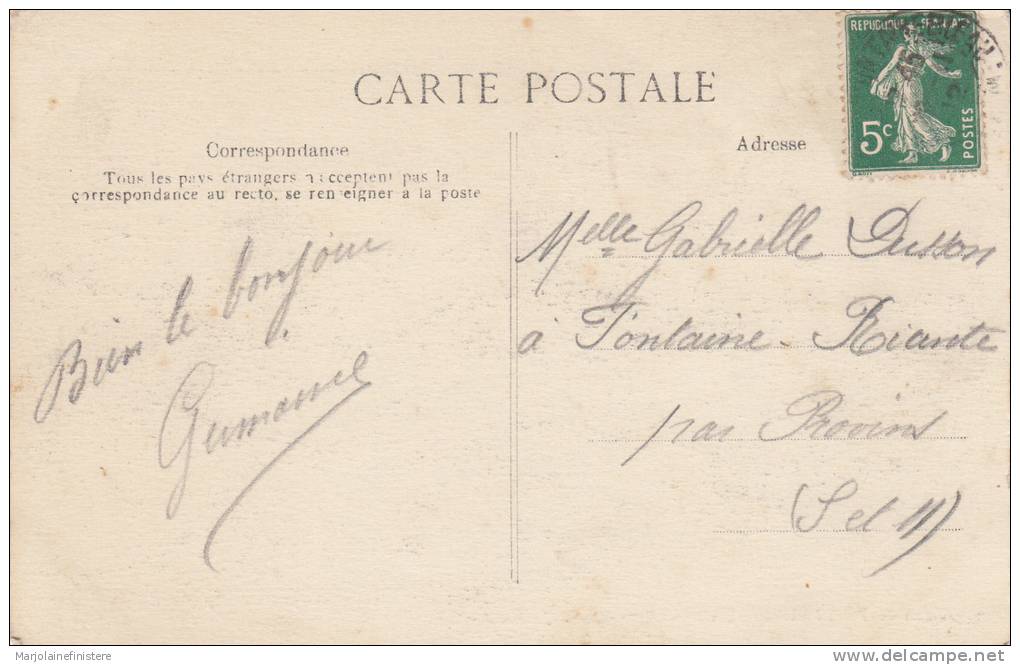 CARTE POSTALE
Correspondance
Tous les pays étrangers n'acceptent pas la
correspondance au recto, se renseigner à la poste
Bien le bonjour
Germaine
Adresse
REPUBLIQUE FRANÇAISE
5c
POSTES
Melle Gabrielle Dusson
à Fontaine-Riante
par Provins
(S et M)
Marjolainefinistere
delcampe.net